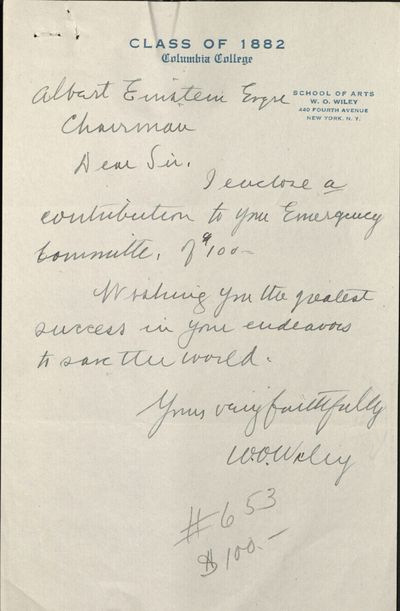 CLASS OF 1882
Columbia College
SCHOOL OF ARTS
W. O. WILEY
440 FOURTH AVENUE
NEW YORK, N. Y.
Albert Einstein Esqre
Chairman
Dear Sir.
I enclose a
contribution to your Emergency
Committe. of $100-
Wishing you the greatest
success in your endeavors
to save the world.
Yours very faithfully
W.O.Wiley
#653
$100.-